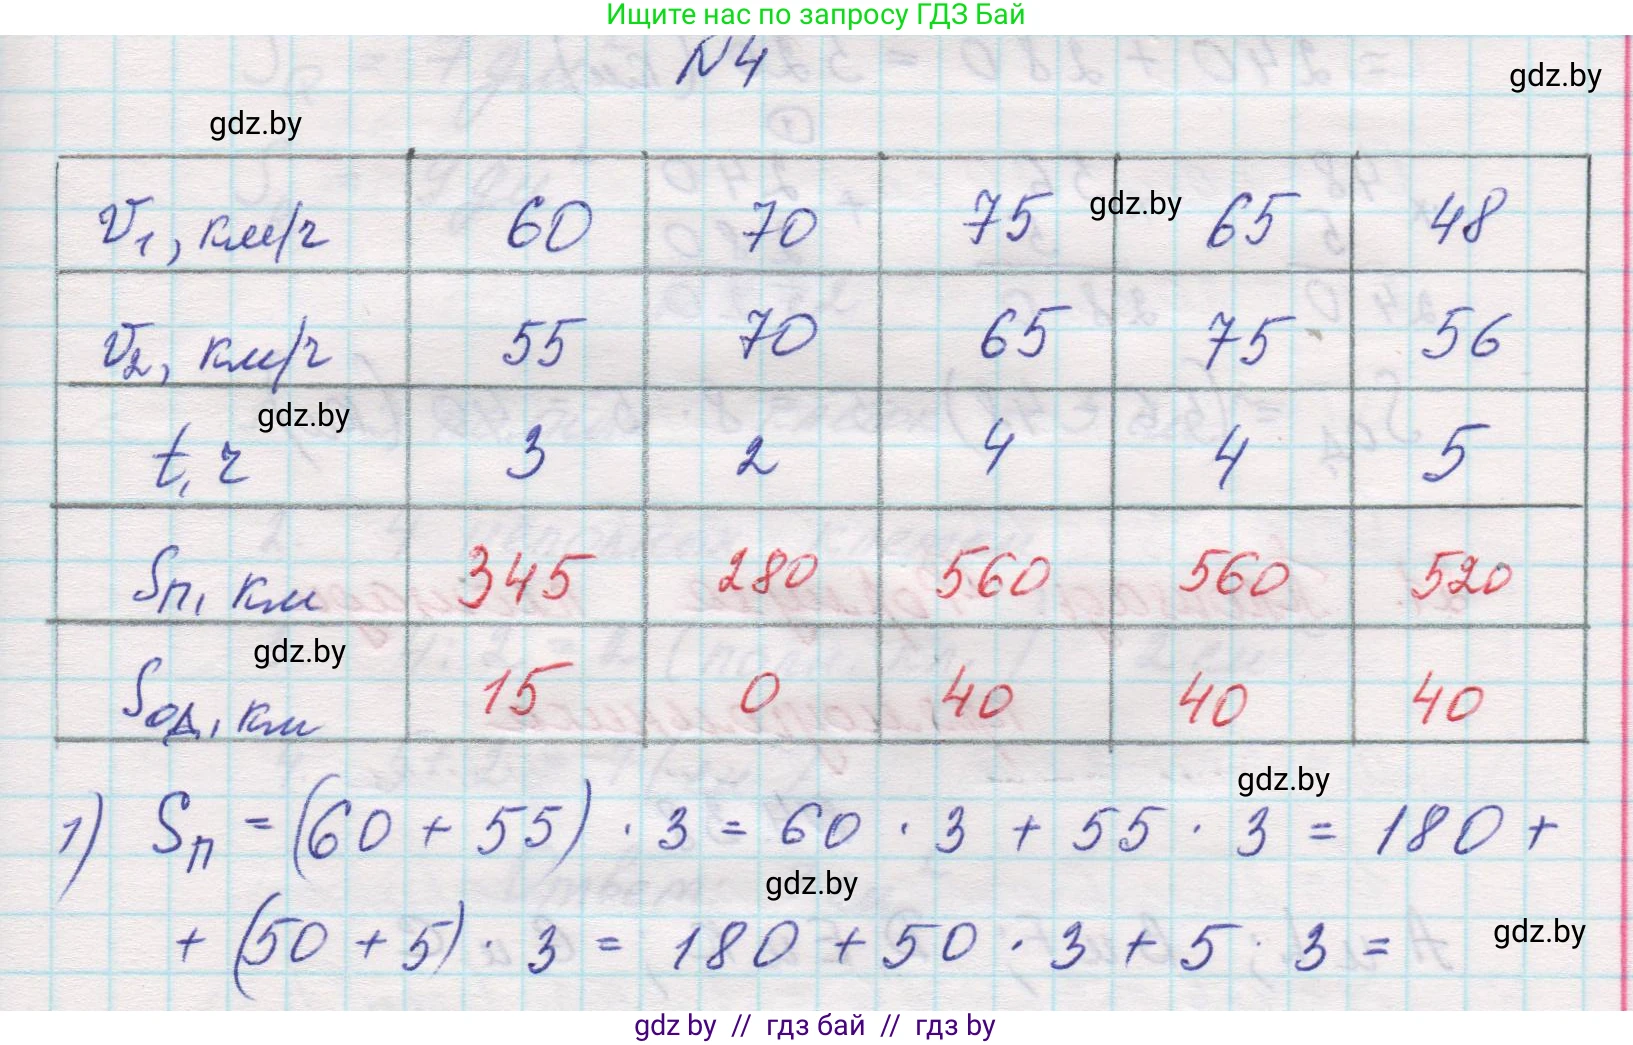 Ищите нас по запросу ГДЗ Бай
N4
gdz.by
gdz.by
v₁, км/ч 60 70 75 65 48
gdz.by
v₂, км/ч 55 70 65 75 56
gdz.by
t, ч 3 2 4 4 5
Sп, км 345 280 560 560 520
gdz.by
Sод, км 15 0 40 40 40
gdz.by
1) Sп = (60 + 55) · 3 = 60 · 3 + 55 · 3 = 180 +
gdz.by
+ (50 + 5) · 3 = 180 + 50 · 3 + 5 · 3 =
gdz.by
gdz by // гдз бай // gdz by